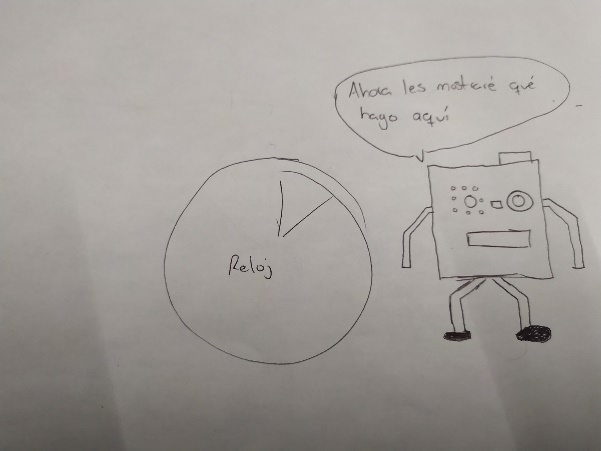 Ahora les mostraré qué
hago aquí
Reloj